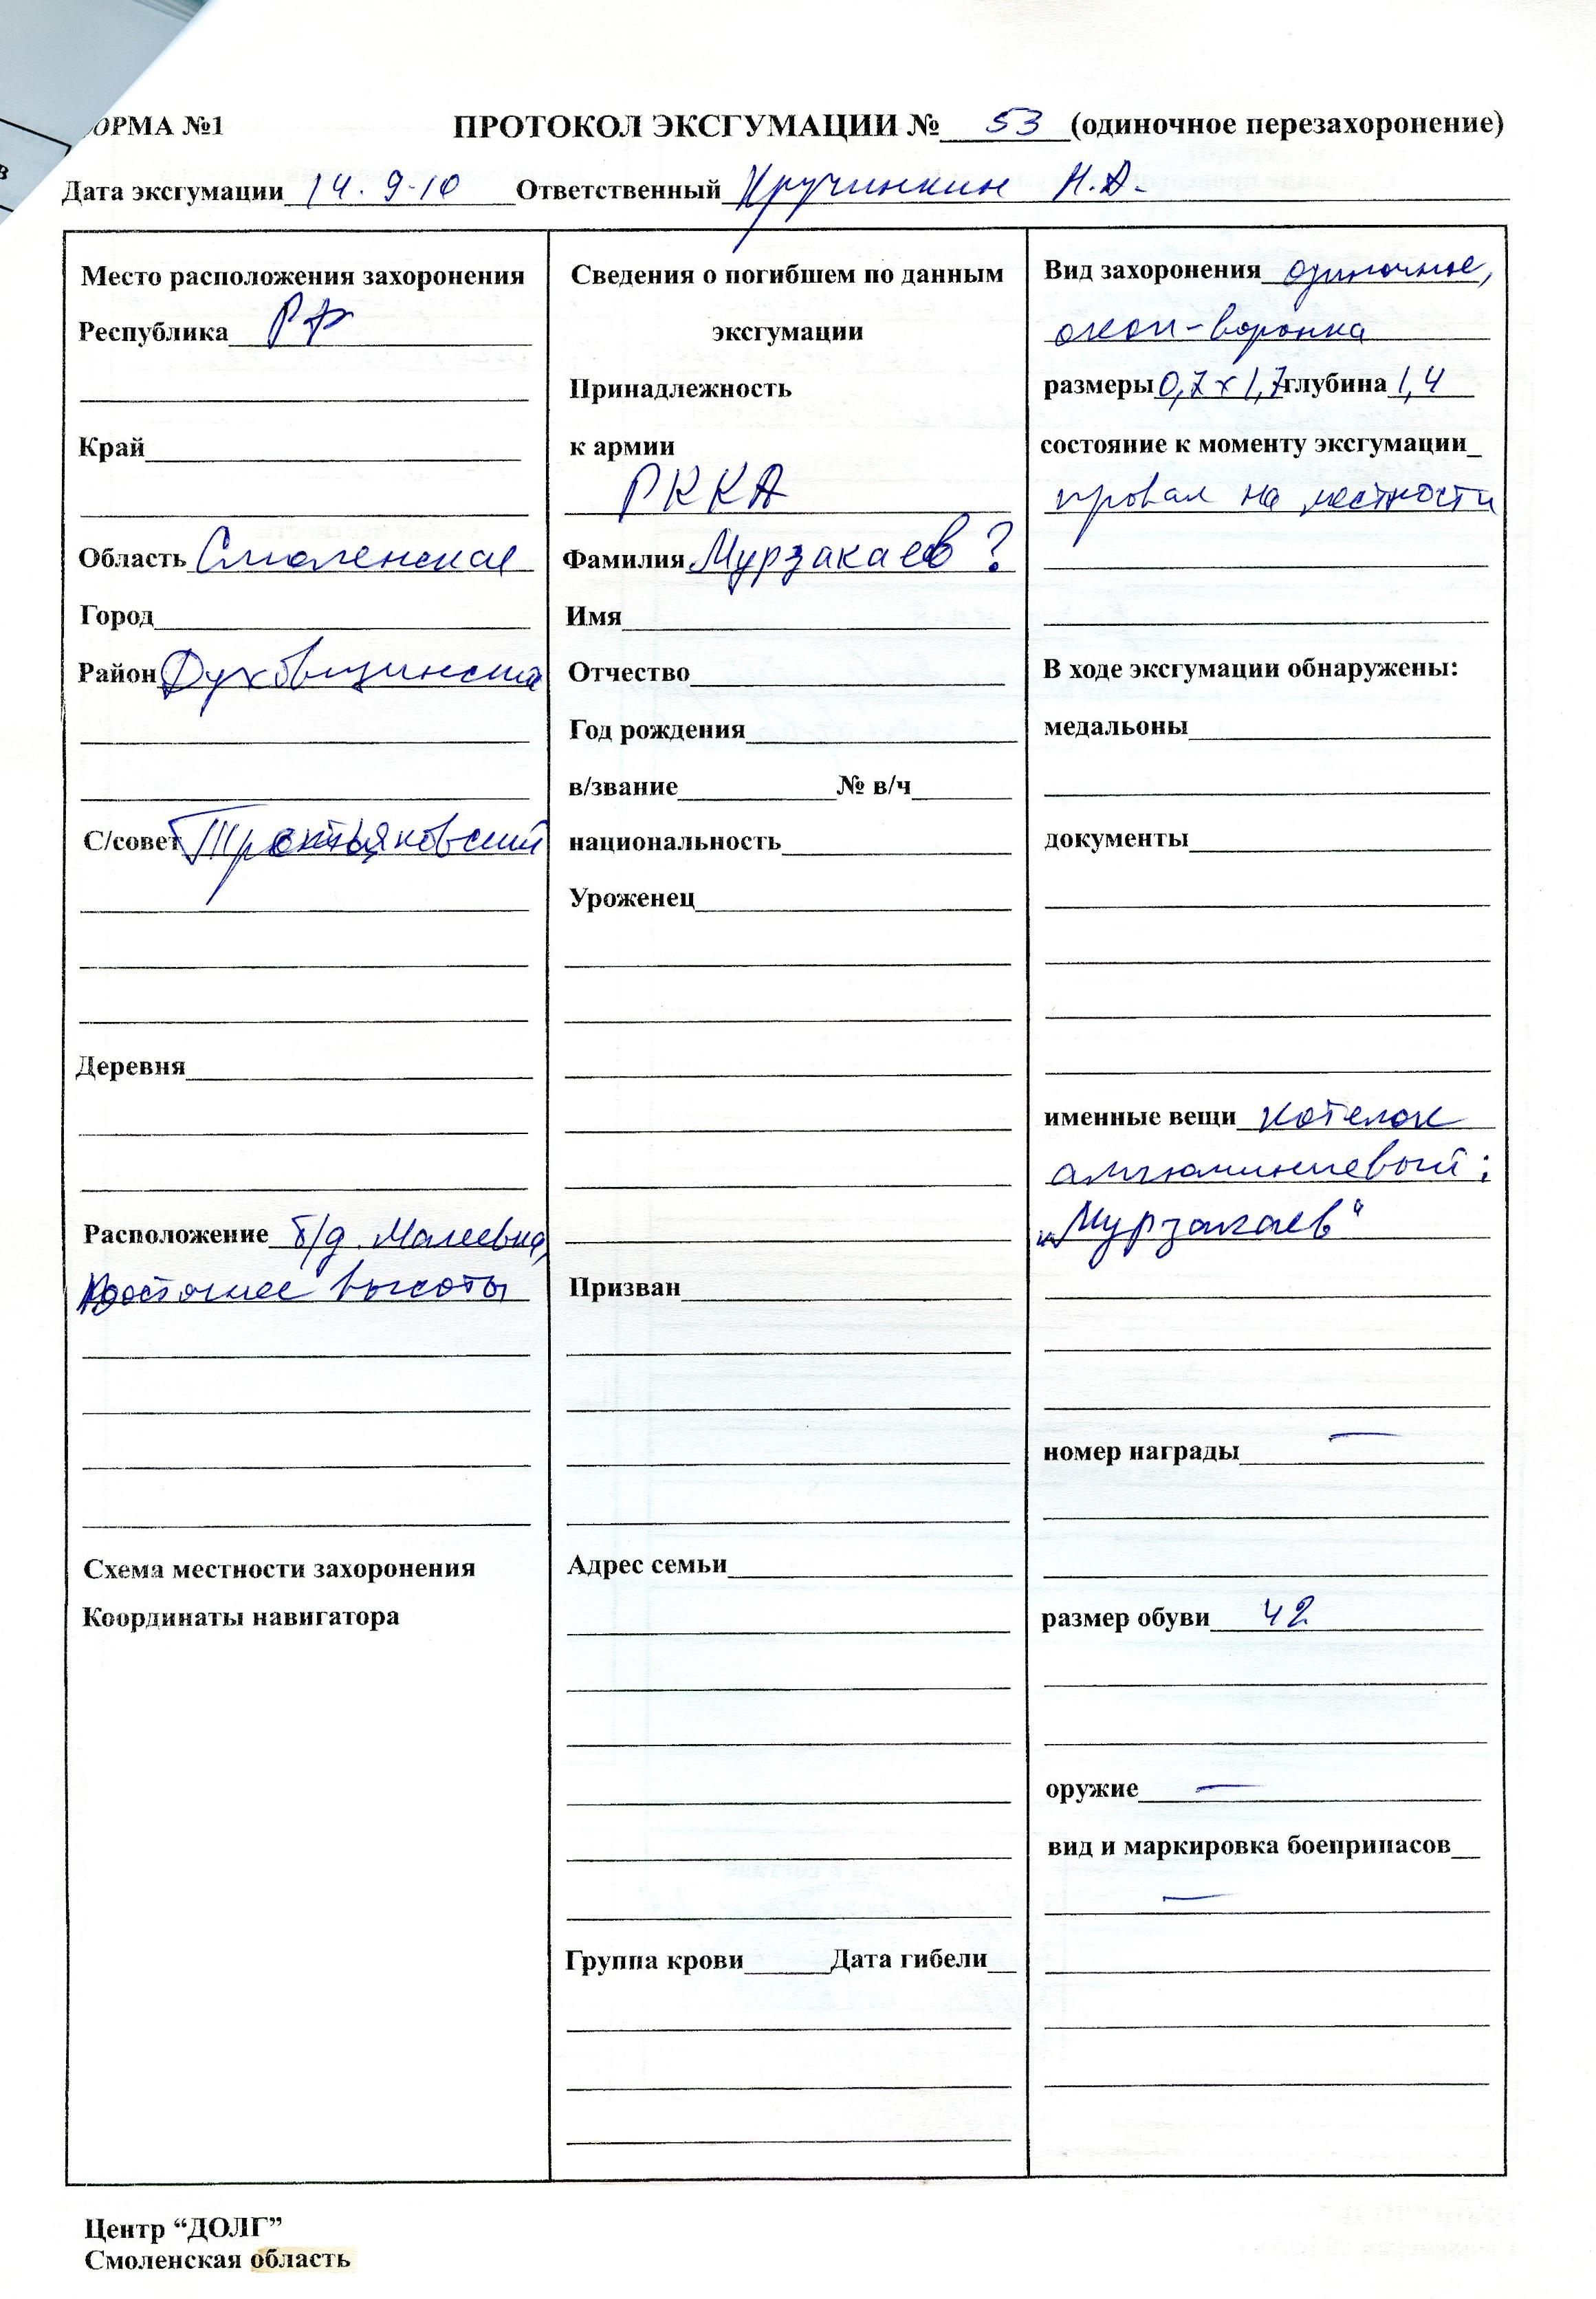 ОРМА №1
ПРОТОКОЛ ЭКСГУМАЦИИ № 53 (одиночное перезахоронение)
Дата эксгумации 14.9.10 Ответственный Кручинкин Н.Д.
Место расположения захоронения
Республика РФ
Край
Область Смоленская
Город
Район Духовщинский
С/совет Третьяковский
Деревня
Расположение б/д.
восточнее высоты
Схема местности захоронения
Координаты навигатора
Сведения о погибшем по данным
эксгумации
Принадлежность
к армии
РККА
Фамилия Мурзакаев ?
Имя
Отчество
Год рождения
в/звание № в/ч
национальность
Уроженец
Призван
Адрес семьи
Группа крови Дата гибели
Вид захоронения одиночное,
окоп-воронка
размеры 0,7 х 1,7 глубина 1,4
состояние к моменту эксгумации
провал на местности
В ходе эксгумации обнаружены:
медальоны
документы
именные вещи котелок
алюминиевый:
„Мурзакаев“
номер награды —
размер обуви 42
оружие —
вид и маркировка боеприпасов
—
Центр “ДОЛГ”
Смоленская область